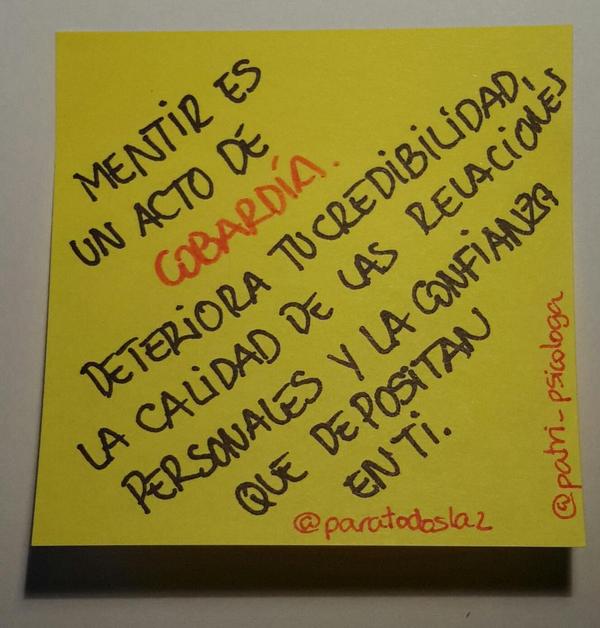 MENTIR ES
UN ACTO DE
COBARDÍA.
DETERIORA TU CREDIBILIDAD,
LA CALIDAD DE LAS RELACIONES
PERSONALES Y LA CONFIANZA
QUE DEPOSITAN
EN TI.
@paratodosla2
@patri_psicologa